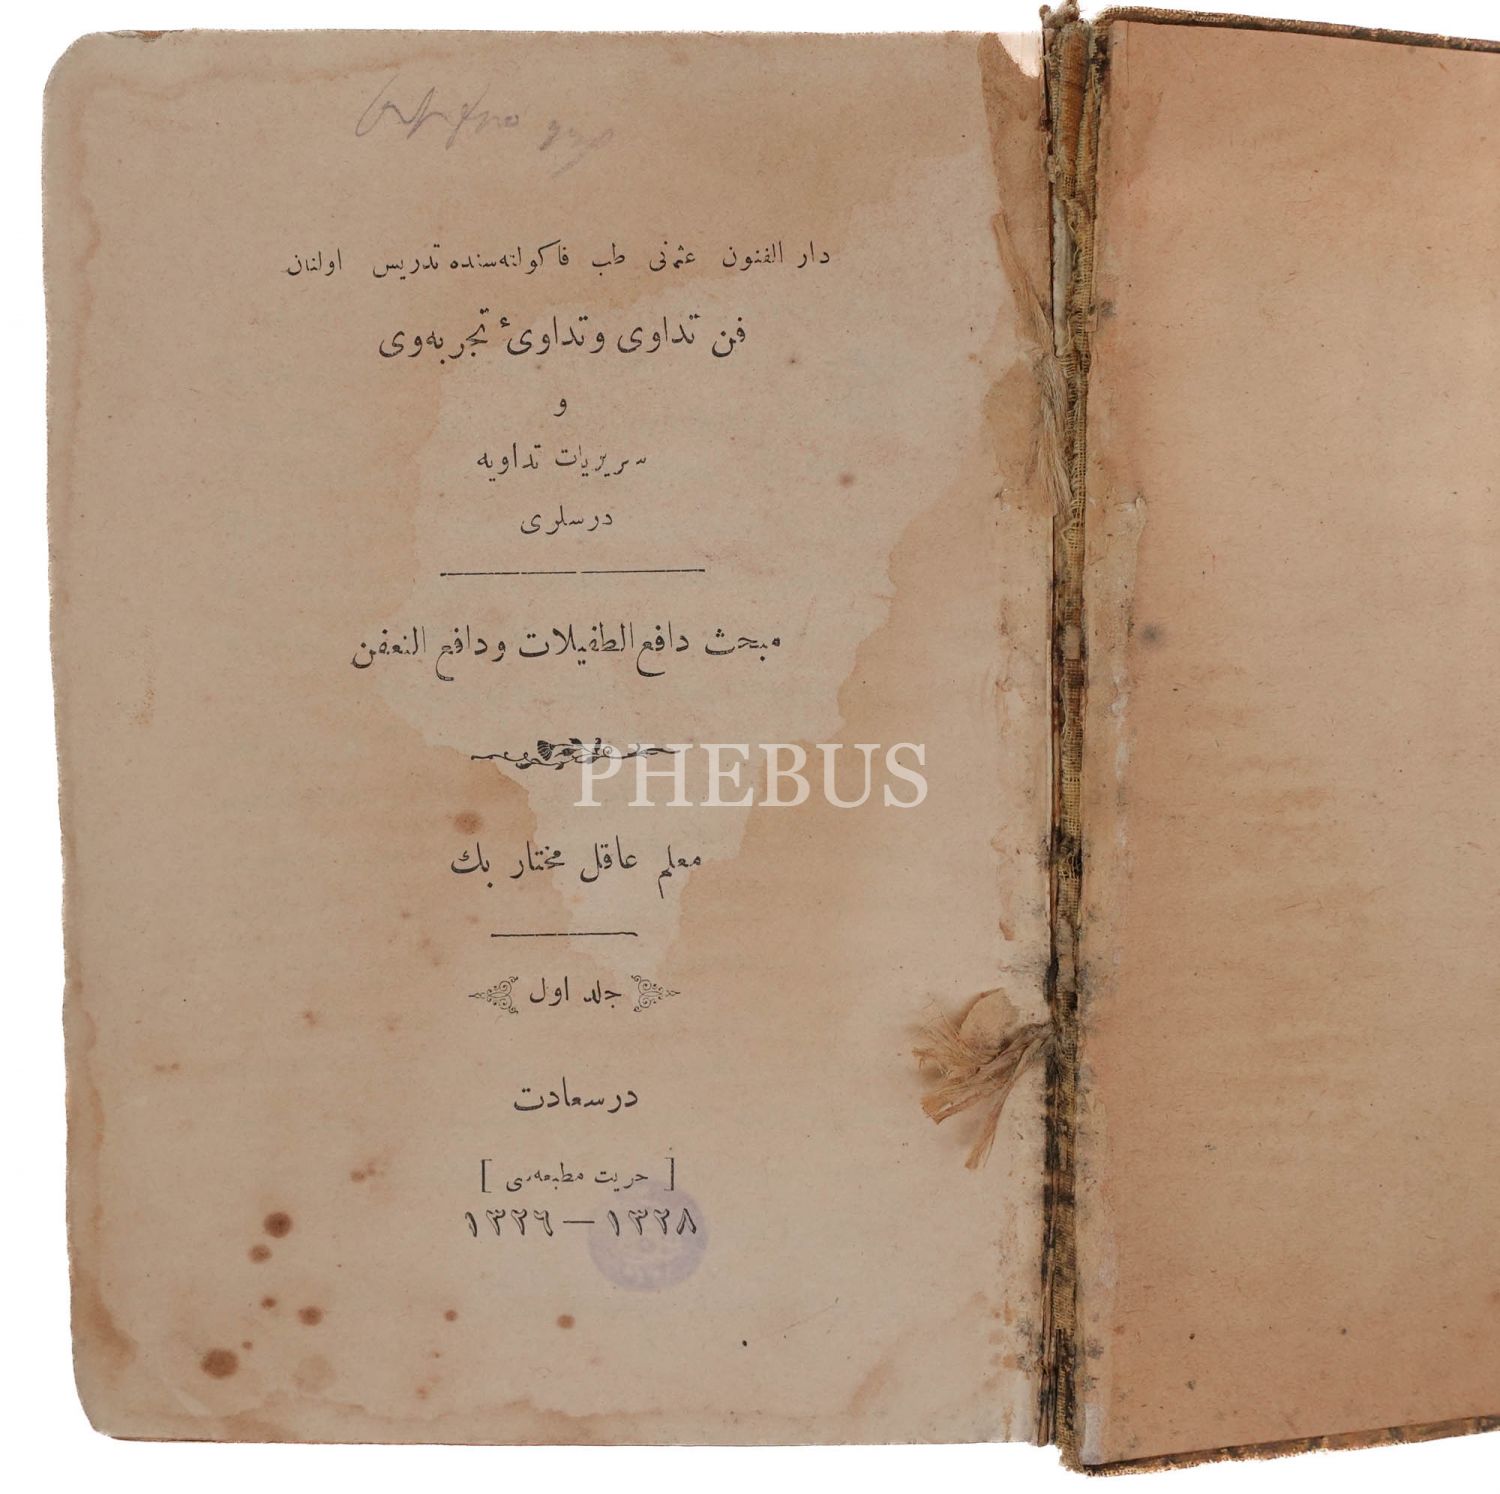 دار الفنون عثمنی طب فاکولته‌سنده تدریس اولنان
فن تداوی و تداوئ تجربه‌وی
و
سریریات تداویه
درسلری
مبحث دافع الطفیلات ودافع التعفن
PHEBUS
معلم عاقل مختار بك
جلد اول
درسعادت
[ حریت مطبعه‌سی ]
١٣٢٦ — ١٣٢٨